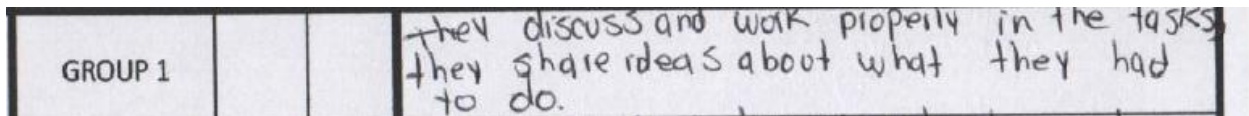 GROUP 1
They discuss and work properly in the tasks,
they share ideas about what they had
to do.